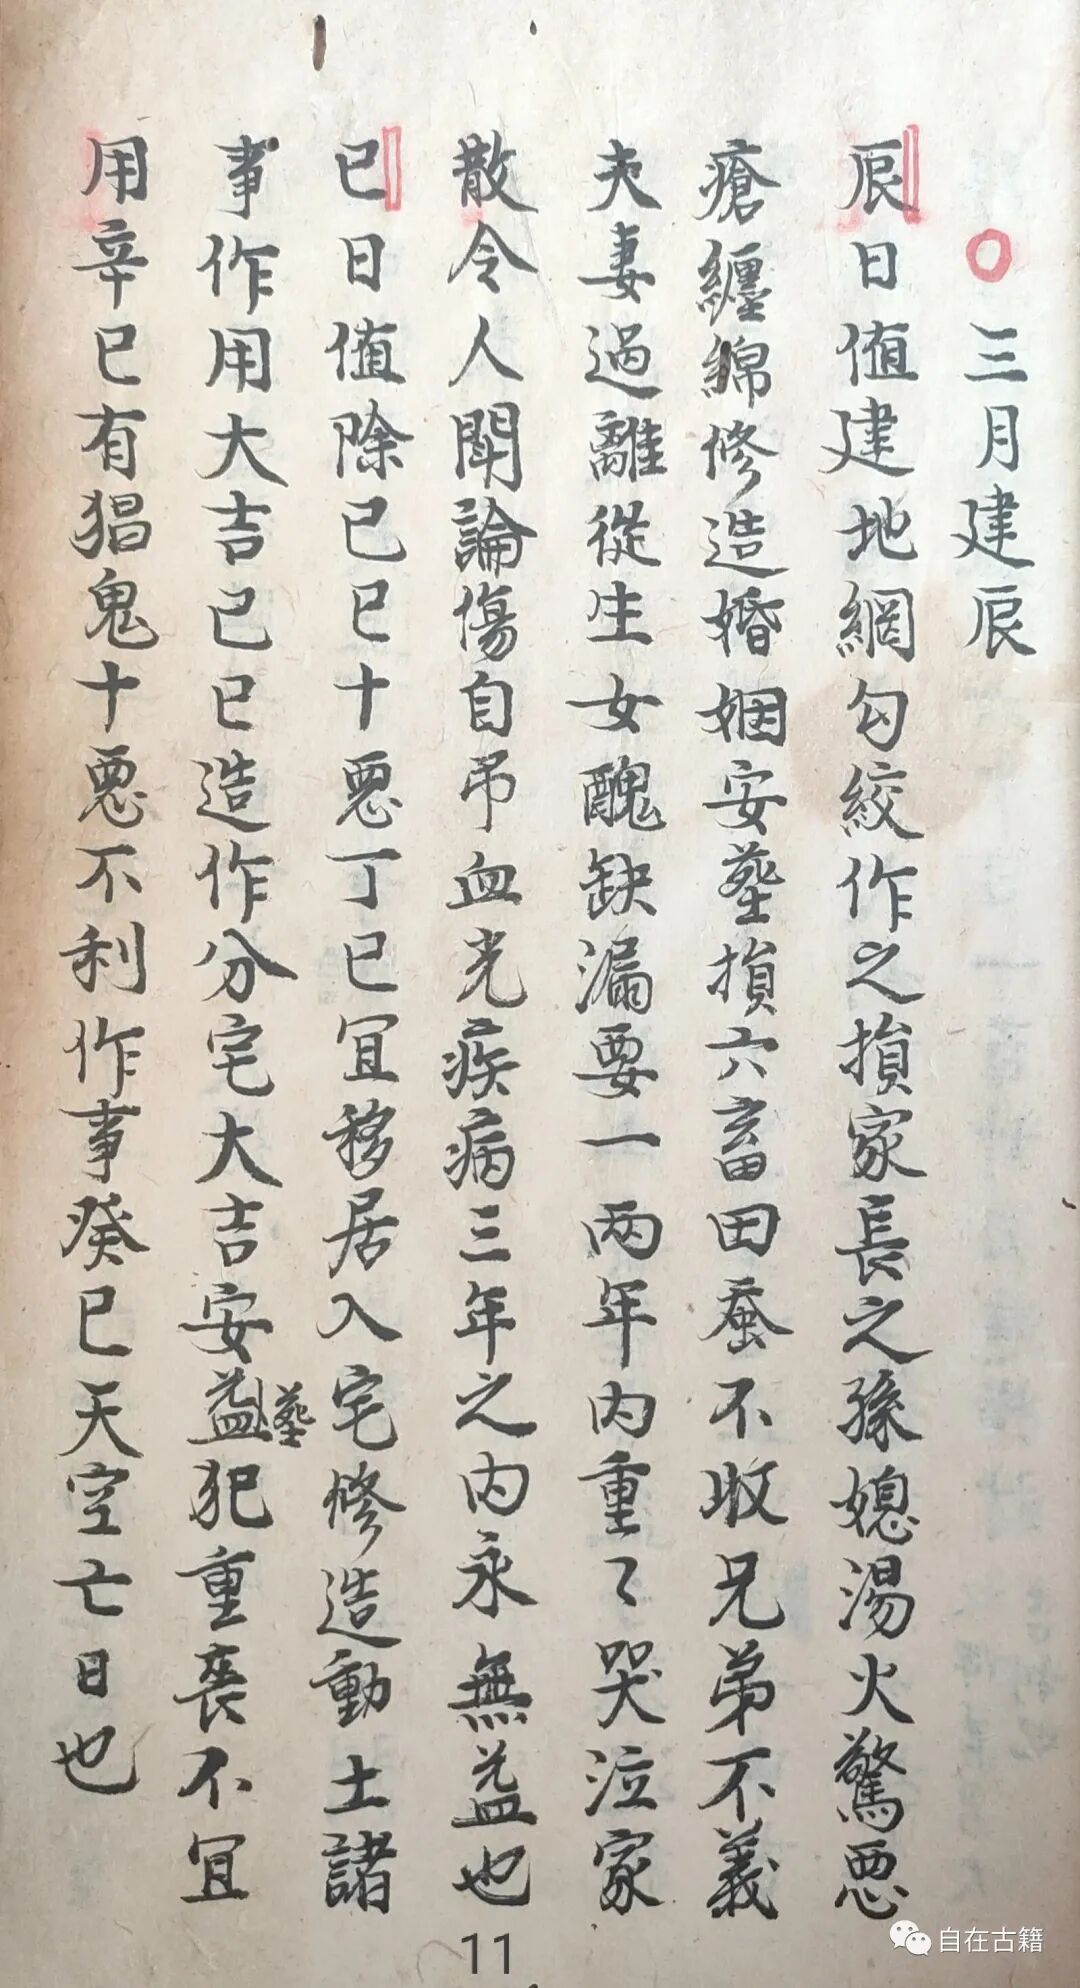 ○三月建辰
辰日值建地網勾絞作之損家長之孫媳湯火驚惡
瘡纏綿修造婚姻安塟損六畜田蚕不收兄弟不義
夫妻過離從生女醜缺漏要一两年内重〻哭泣家
散令人聞論傷自吊血光疾病三年之内永無益也
巳日值除己巳十惡丁巳宜移居入宅修造動土諸
事作用大吉己巳造作分宅大吉安益塟犯重喪不宜
用辛巳有猖鬼十惡不利作事癸巳天空亡日也
11
自在古籍